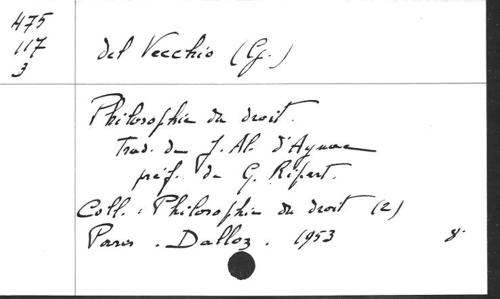 475
117
3
del Vecchio (G.)
Philosophie du droit.
Trad. de J. Al. d'Aynac
préf. de G. Ripert.
Coll. : Philosophie du droit (2)
Paris. Dalloz. 1953 8°